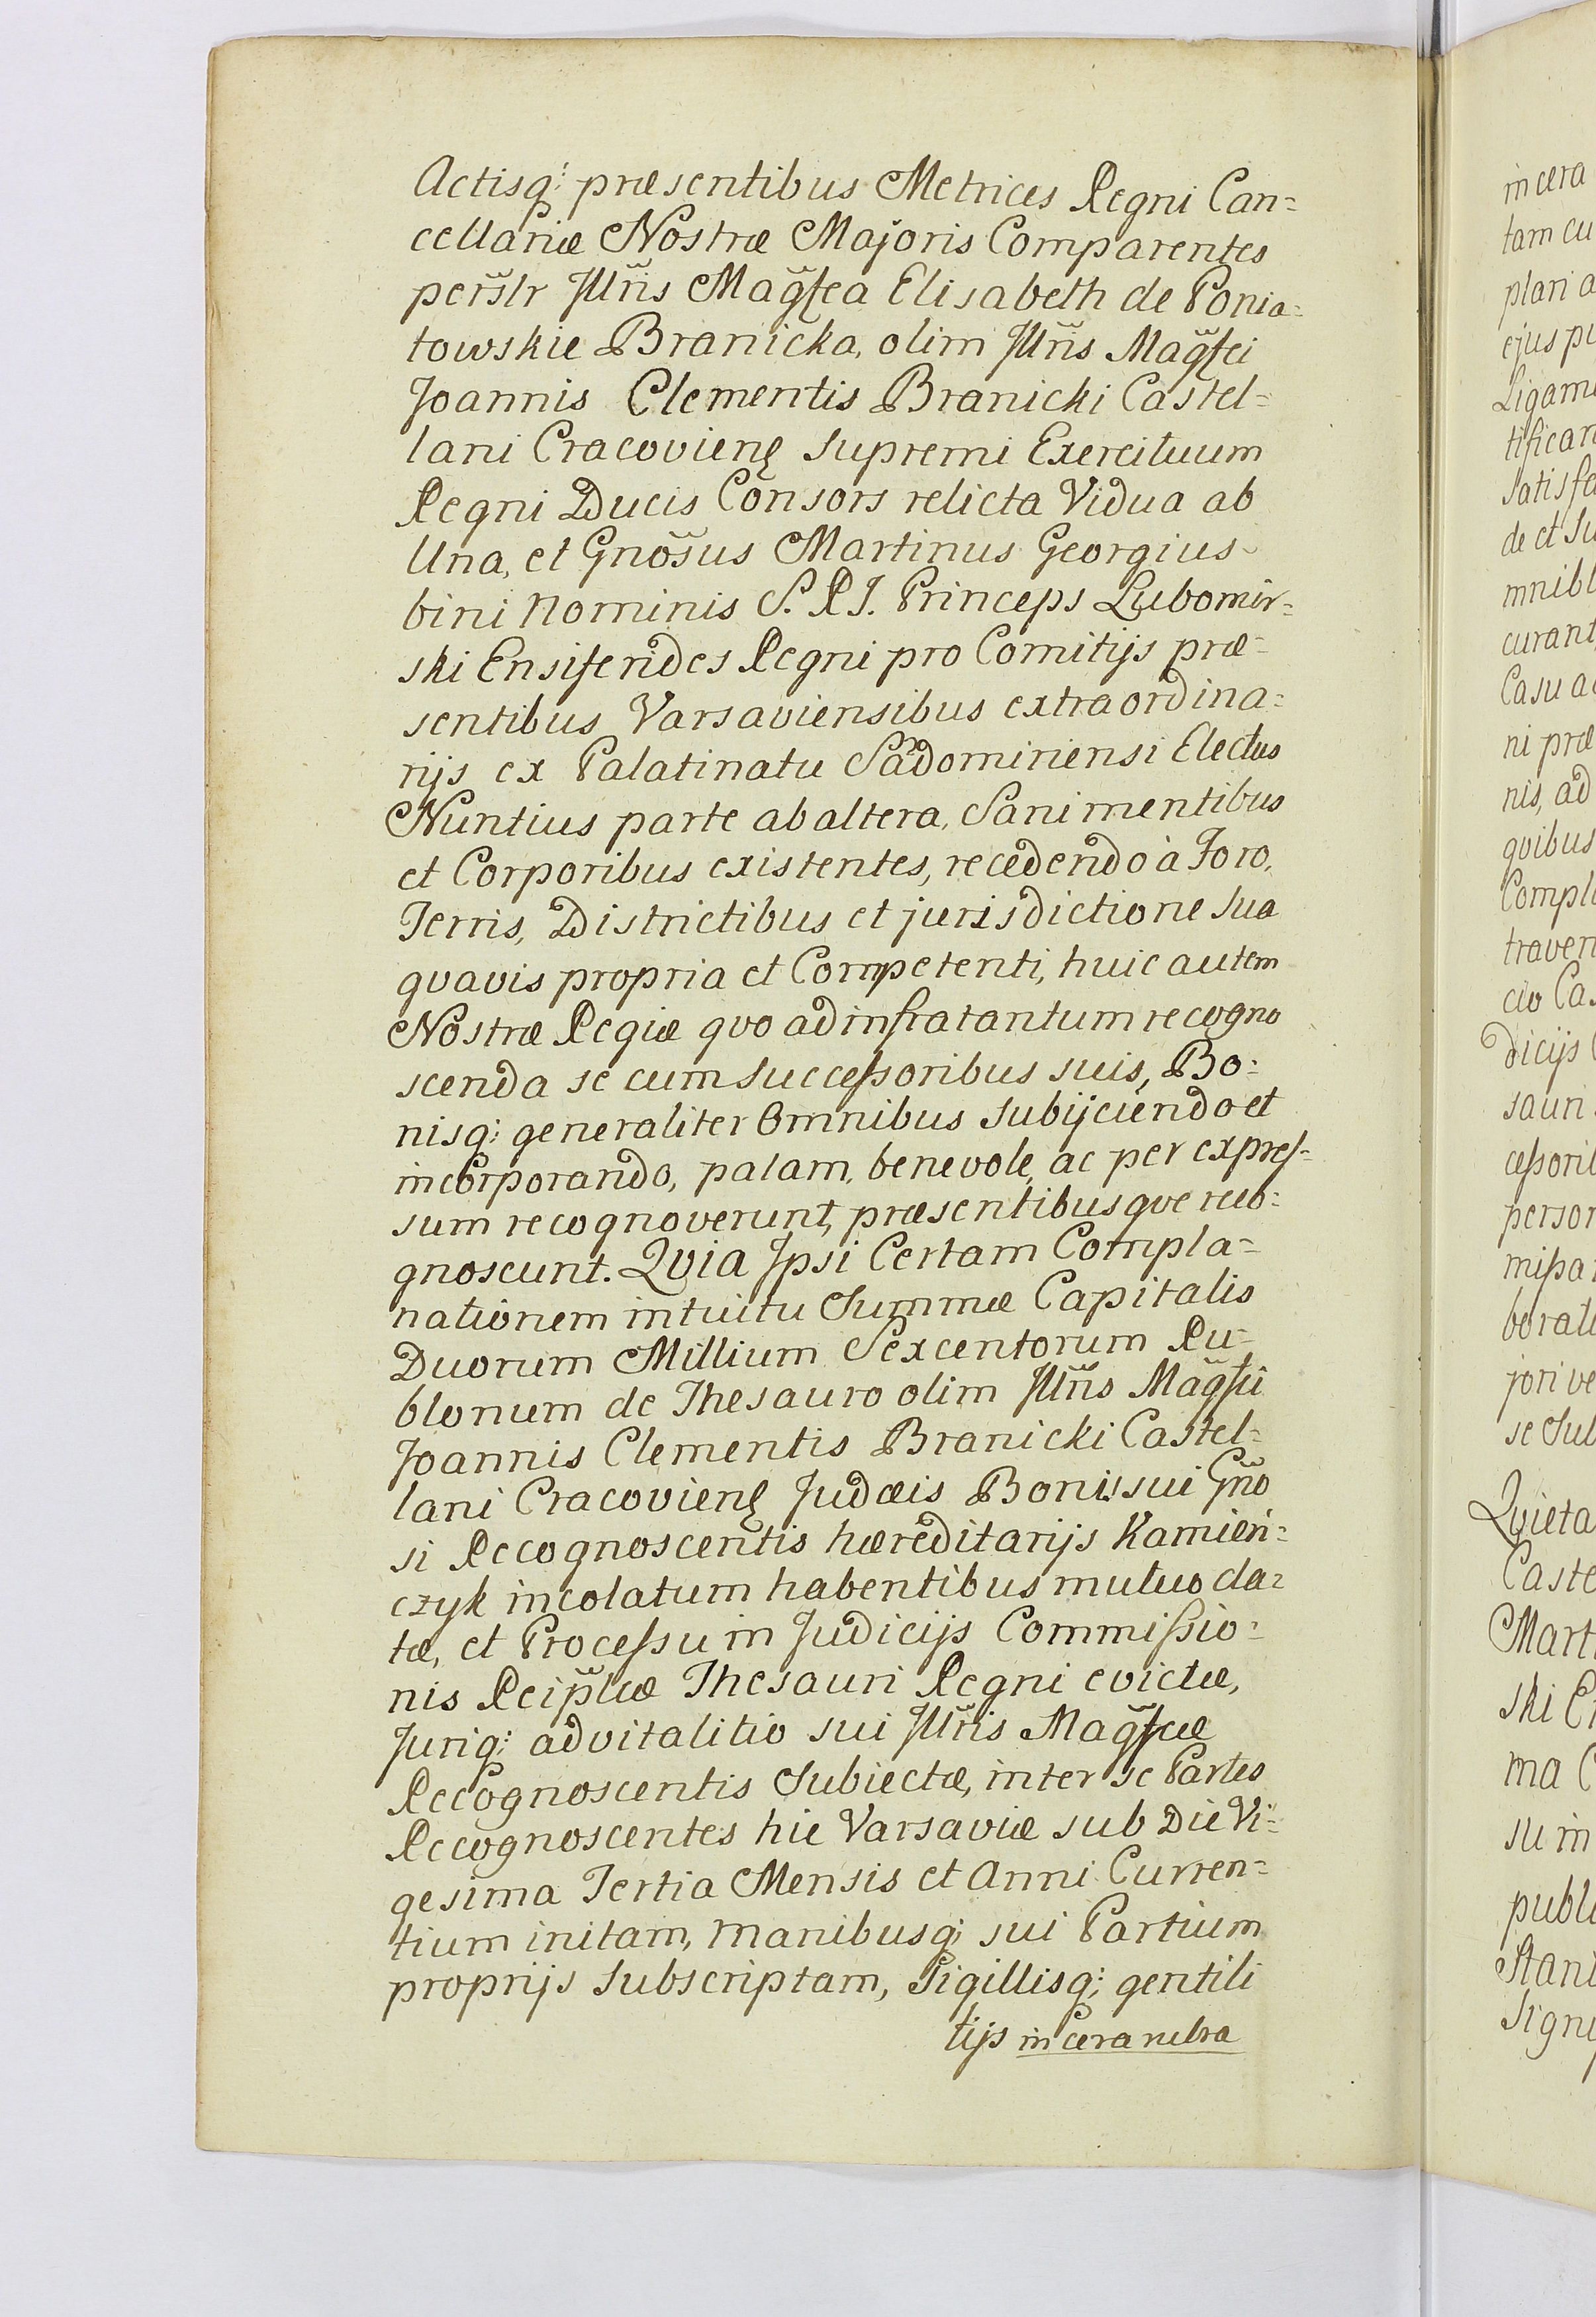 Actisq; præsentibus Metrices Regni Can=
cellariæ Nostræ Majoris Comparentes
pers̃lr Jllr̃is Mag̃fca Elisabeth de Ponia=
towskie Branicka, olim Jllr̃is Mag̃fci
Joannis Clementis Branicki Castel=
lani Cracovienę Supremi Exercituum
Regni Ducis Consors relicta Vidua ab
Una, et Gnos̃us Martinus Georgius
bini Nominis S. R J. Princeps Lubomir=
ski Ensiferides Regni pro Comitijs præ=
sentibus Varsaviensibus extraordina=
rijs ex Palatinatu Sãdomiriensi Electus
Nuntius parte ab altera, Sani mentibus
et Corporibus existentes, recedendo à Foro,
Terris, Districtibus et jurisdictione Sua
qvavis propria et Competenti, huic autem
Nostræ Regiæ qvo ad infra tantum recogno
scenda se cum Successoribus suis, Bo=
nisq; generaliter Omnibus Subijciendo et
incorporando, palam, benevole, ac per expres=
sum recognoverunt, præsentibusqve reco=
gnoscunt. Qvia Jpsi Certam Compla=
nationem intuitu Summæ Capitalis
Duorum Millium Sexcentorum Ru=
blonum de Thesauro olim Jllr̃is Mag̃fci
Joannis Clementis Branicki Castel=
lani Cracovienę Judæis Bonis sui Gño
si Recognoscentis hæreditarijs Kamień=
czyk incolatum habentibus mutuo da=
tæ, et Processu in Judicijs Commissio=
nis Reip̃lcæ Thesauri Regni evictæ,
Juriq; advitalitio sui Jllr̃is Mag̃fcæ
Recognoscentis Subiectæ, inter se Partes
Recognoscentes hic Varsaviæ sub Die Vi=
gesima Tertia Mensis et Anni Curren=
tium initam, Manibusq; sui Partium
proprijs Subscriptam, Sigillisq; gentili
tijs in cera rubra
in cera
tam cu
plari a
ejus pu
Ligame
tifican
Satisfa
de et Su
mnibu
curant
Casu a
ni præ
nis, ad
qvibus
Compl
traven
cio Ca
dicijs
sauri
cessorib
person
missa
borati
jori ve
se Sub
Qvieta
Caste
Mart
ski E
ma C
su in
publi
Stani
Signi